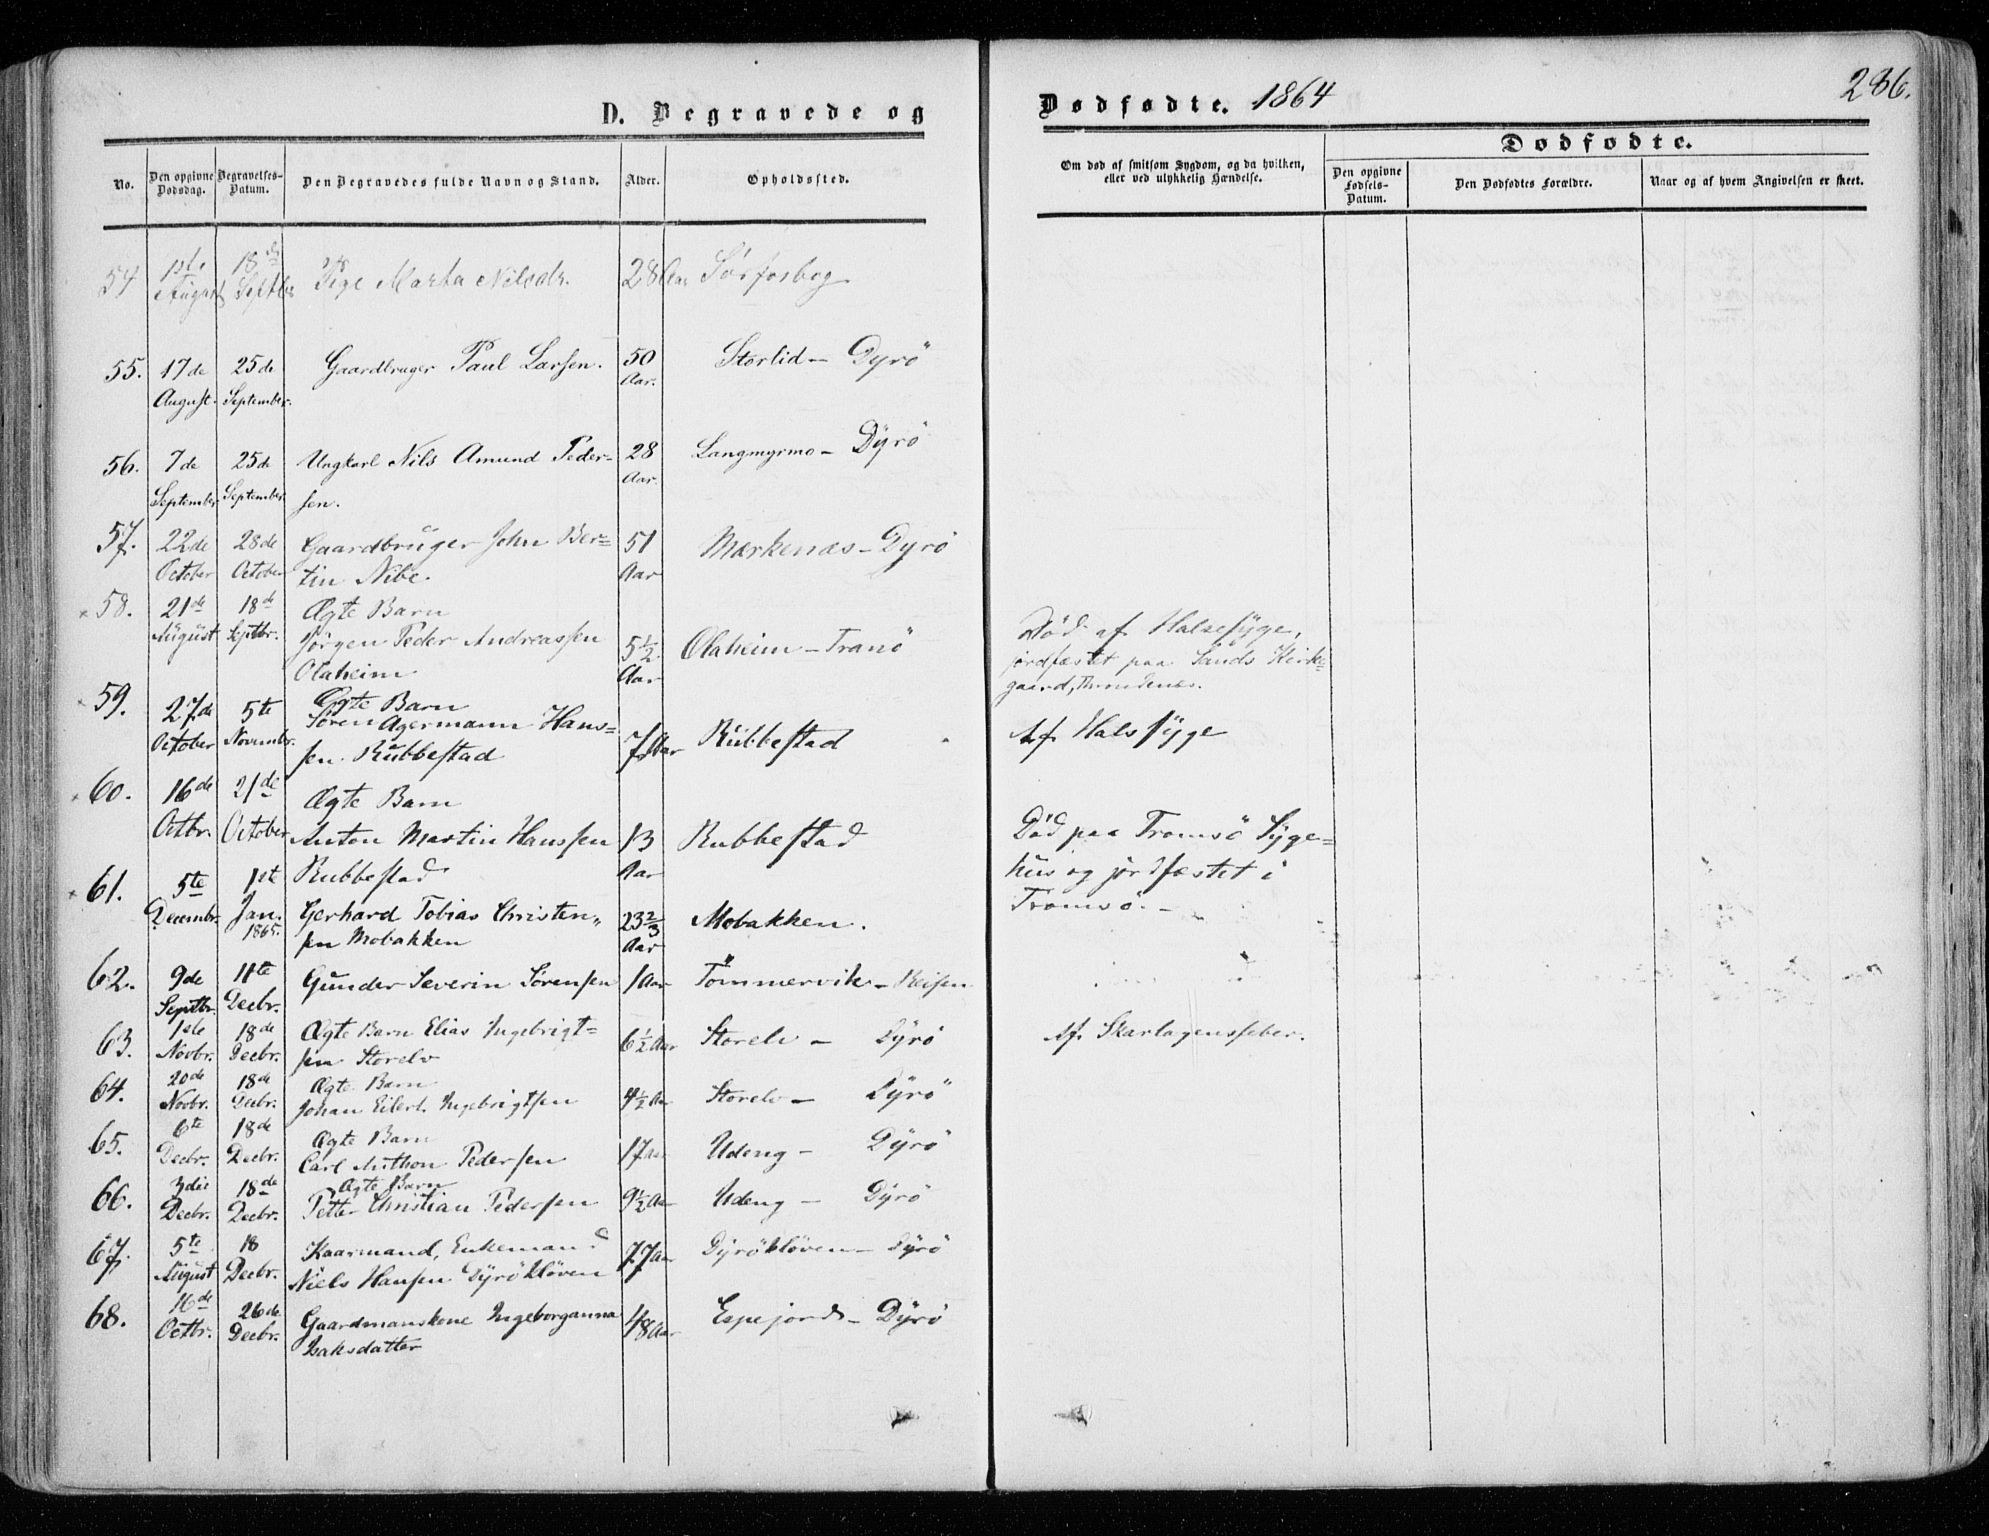 D. Begravede og
No.
Den opgivne Dødsdag.
Begravelses-Datum.
Den Begravedes fulde Navn og Stand.
Alder.
Opholdssted.
54 1ste August 18de Septbr Pige Marta Nilsdr. 28 Aar Sørforsbog
55. 17de August. 25de September. Gaardbruger Paul Larsen. 50 Aar. Storlid – Dyrö
56. 7de September 25de September Ungkarl Nils Amund Peder=
sen. 28 Aar. Langmyrmo – Dyrö
57. 22de October 28de October Gaardbruger John Ber=
tin Nibe. 51 Aar Mærkenæs – Dyrö
58. 21de August 18de Septbr. Ægte Barn
Jörgen Peder Andreassen
Olaheim 5½ Aar Olaheim – Tranö
59. 27de October 5te Novembr. Ægte Barn
Søren Agermann Hans=
sen Rubbestad 7 Aar Rubbestad
60. 16de Octbr. 21de October Ægte Barn
Anton Martin Hanssen
Rubbestad 13 Aar Rubbestad
61. 5te Decembr. 1ste Jan. 1865. Gerhard Tobias Christen„
sen Mobakken 23⅔ Aar Mobakken.
62. 9de Septbr. 11te Decbr. Gunder Severin Sörensen 1 Aar Tömmervik – Reisen
63. 1ste Novbr. 18de Decbr. Ægte Barn Elias Ingebrigt=
sen Storelv 6½ Aar Storelv – Dyrö
64. 20de Novbr. 18de Decbr. Ægte Barn
Johan Eilert Ingebrigtsen 4½ Aar Storelv – Dyrö
65. 6te Decbr. 18de Decbr. Ægte Barn
Carl Anthon Pedersen 17 Aar Udeng – Dyrö
66. 3die Decbr. 18de Decbr. Ægte Barn
Petter Christian Pedersen 9½ Aar Udeng – Dyrö
67. 5te August 18 Decbr. Kaarmand, Enkemand
Niels Hansen Dyröklöven 77 Aar Dyröklöven – Dyrö
68. 16de Octbr. 26de Decbr. Gaardmanskone Ingeborganna
Isaksdatter 48 Aar Espejord – Dyrö
Dødfødte. 1864
286.
Om død af smitsom Sygdom, og da hvilken,
eller ved ulykkelig Hændelse.
Dødfødte.
Den opgivne Fødsels-Datum.
Den Dødfødtes Forældre.
Naar og af hvem Angivelsen er skeet.
Död af Halsesyge,
jordfæstet paa Sands Kirke=
gaard, Throndenes.
Af Halssyge
Död paa Tromsö Syge=
hus og jordfæstet i
Tromsö. –
Af Skarlagensfeber.